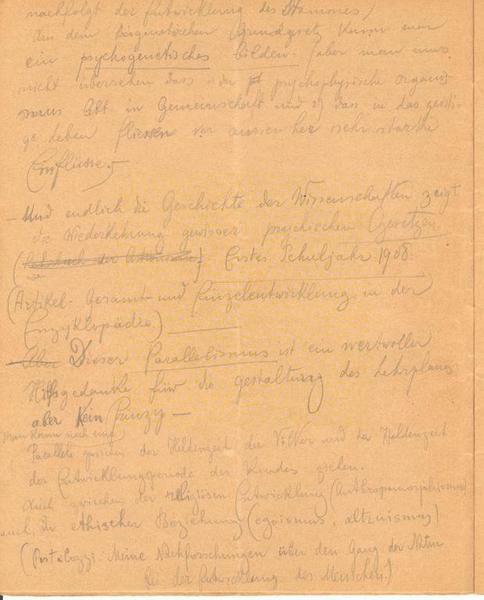 nachfolgt der Entwicklung des Stammes)
Aus dem biogenetischen Grundgesetz kann man
ein psychogenetisches bilden. (aber man muss
nicht übersehen dass 1) der psychophysische Organis-
mus lebt in Gemeinschaft und 2) dass in das geisti-
ge Leben fliessen von aussen her sehr starke
Einflüsse.
– Und endlich die Geschichte der Wissenschaften zeigt
die Wiederkehrung gewisser psychischen Gesetzen.
Erstes Schuljahr 1908
(Artikel. Gesamt- und Einzelentwicklung, in der
Enzyklopädie)
Dieser Parallelismus ist ein wertvoller
Hilfsgedanke für die Gestaltung des Lehrplans
aber kein Prinzip –
Man kann noch eine
Parallele zwischen der Heldenzeit der Völker und der Heldenzeit
der Entwicklungsperiode des Kindes ziehen.
Auch zwischen der religiösen Entwicklung (Anthropomorphismus)
auch in ethischer Beziehung (egoismus, altruismus)
(Pestalozzi. Meine Nachforschungen über den Gang der Natur
bei der Entwicklung des Menschen.)